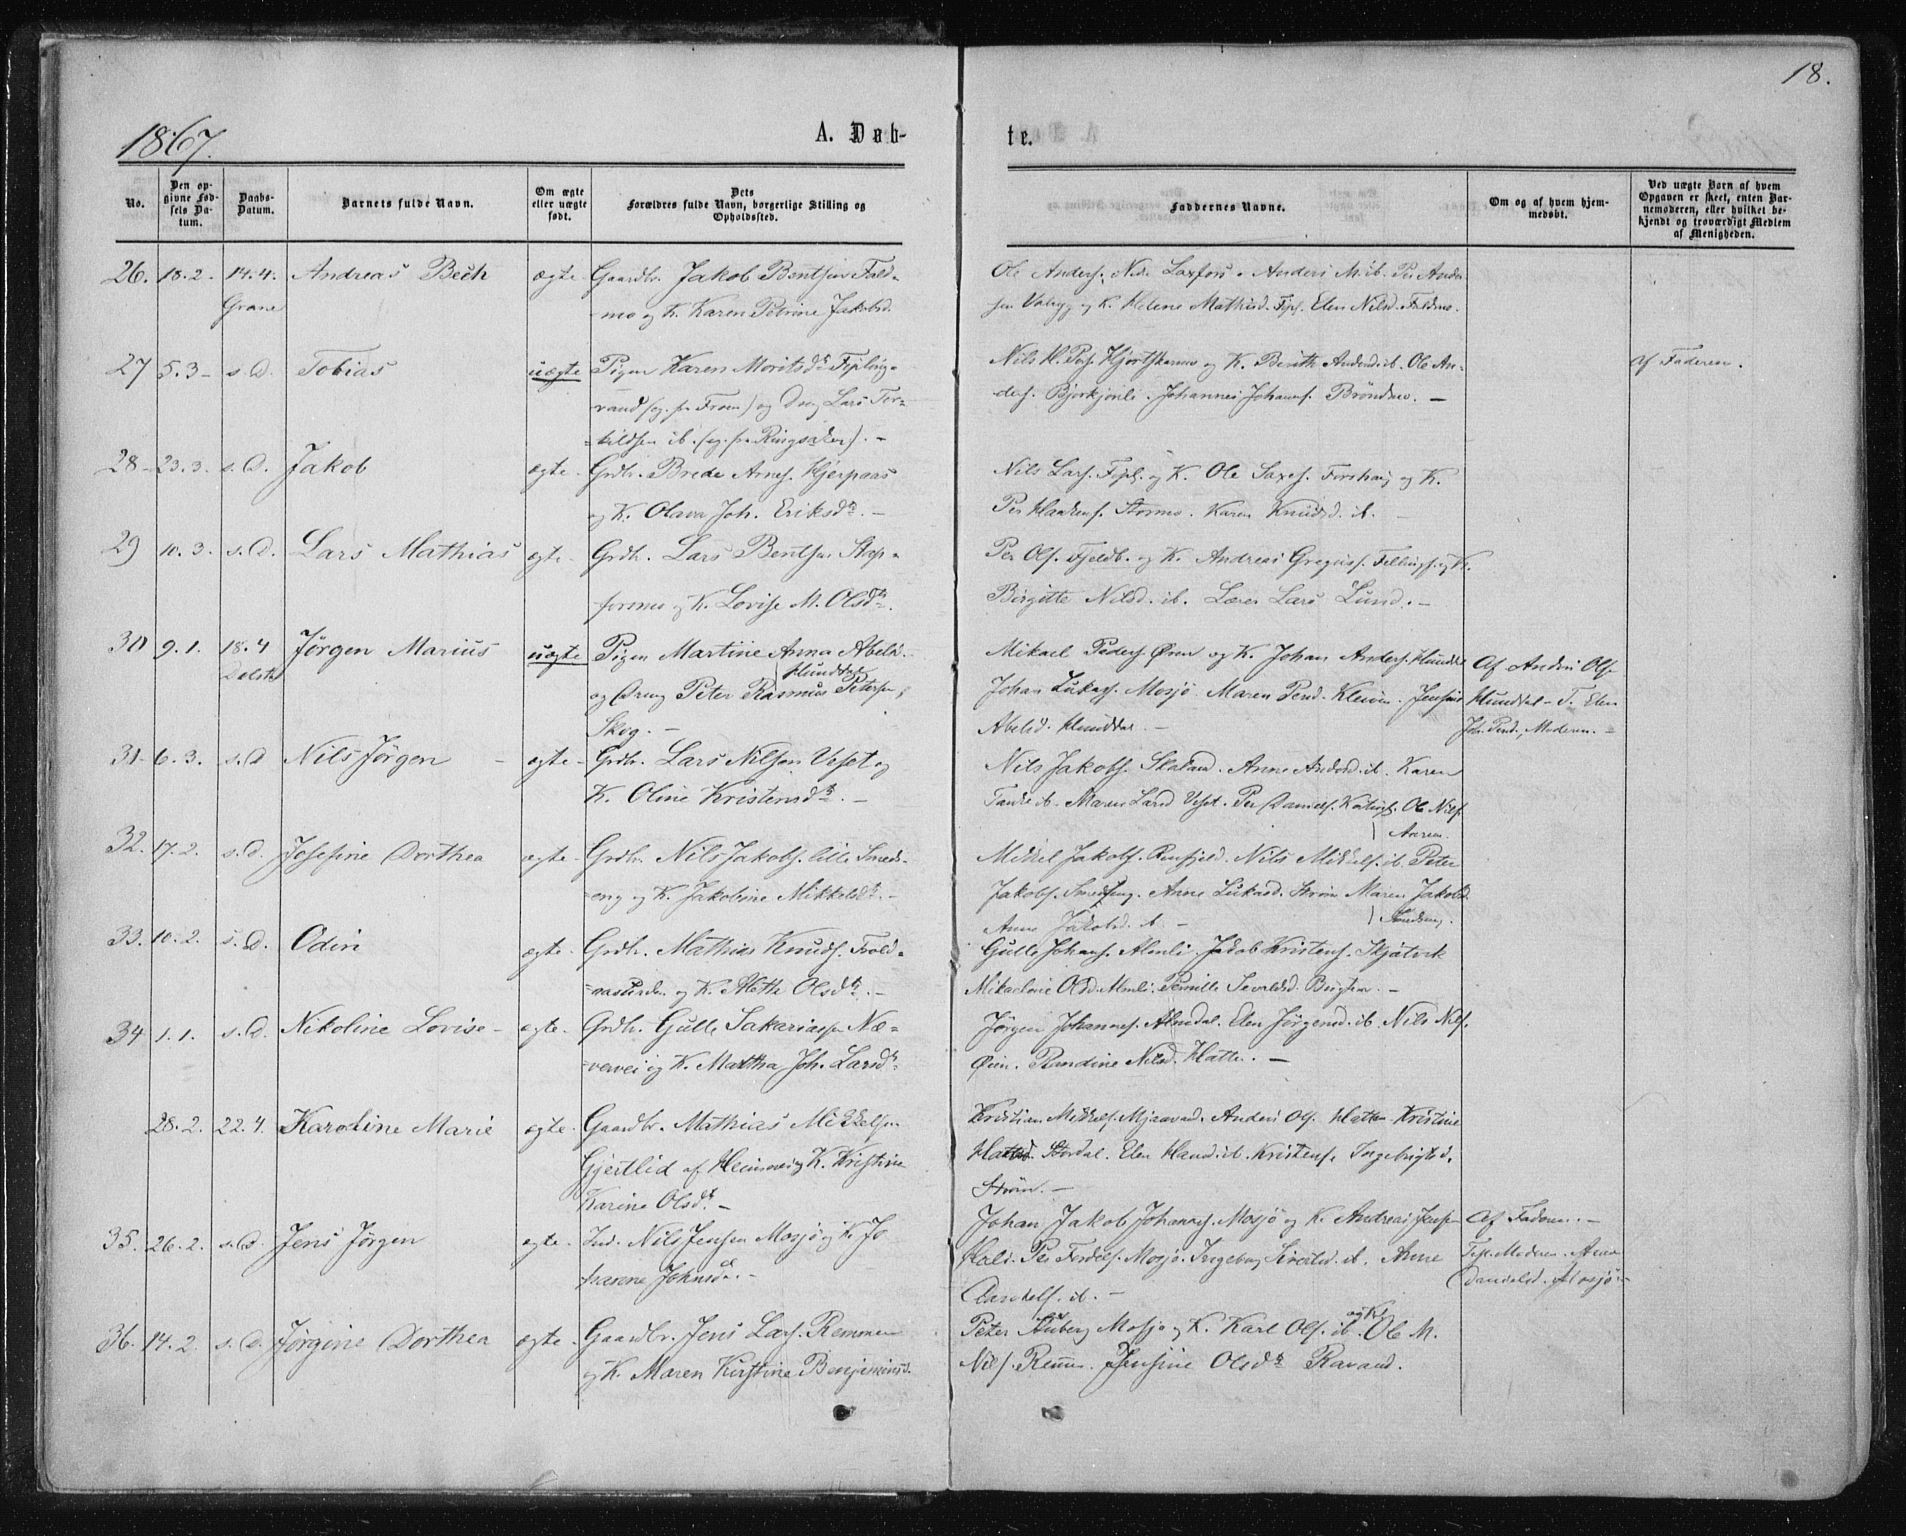 18.
1867.
A. Døb-
te.
No.
Den op-
givne Fød-
sels Da-
tum.
Daabs-
Datum.
Barnets fulde Navn.
Om ægte
eller uægte
født.
Dets
Forældres fulde Navn, borgerlige Stilling og
Opholdssted.
Faddernes Navne.
Om og af hvem hjem-
medøbt.
Ved uægte Børn af hvem
Opgaven er skeet, enten Bar-
nemoderen, eller hvilket be-
kjendt og troværdigt Medlem
af Menigheden.
26. 18.2. 14.4. Andreas Bech ægte Gaardbr. Jakob Bentsen Fald-
Grane mo og K. Karen Petrine Jakobsd.
Ole Anders. Nedr Laxfors. Anders M. ib. Per Ander-
sen og K. Helene Mathisd. Elen Nilsd. Faldmo.
27 5.3 s.D. Tobias uægte Pigen Karen Moritsdr
og Drng Lars Tor-
kildsen ib. (og. fra Ringsaker). -
Nils H. Pers. Hjortskarmo og K. Berith Andersd. ib. Ole An-
ders. Bjorkjönli. Johannes Johans. Bröndmo. -
af Faderen.
28 23.3. s.D. Jakob ægte Grdbr. Brede Arnes. Hjerpaas
og K. Olava Joh. Eriksdr. -
Nils Lars. og K. Ole Saxes. Forshaug og K.
Per Haakens. Stormo. Karen Knudsd. ib.
29 10.3. s.D. Lars Mathias ægte Grdbr. Lars Bentsen Stop-
formo og K. Lovise M. Olsdtr.
Per Ols. Fjeldb. og K. Andreas Gregus. Fellingf. og K.
Birgitte Nilsd. ib. Lærer Lars Lund. -
30 9.1. 18.4 Jørgen Marius uægte Pigen Martine Anna Abelsd.
Dolsta Hunddal
og Drng Peter Rasmus Petersen,
Skog. -
Mikael Peders. Øren og K. Johan Anders. Hundd.
Johan Lukas. Mosjø. Maren Persd. Kleven. Jensine
Abelsd. Hunddal. -
Af Anders Ols.
Hunddal - T. Elen
Joh. Persd., Moderen. -
31 6.3. s.D Nils Jörgen - ægte - Grdbr. Lars Nilsen Veset og
K. Oline Kristensdr. -
Nils Jakobs. Skaland. Anne Andersd. ib. Karen
ib. Maren Larsd Veset. Per Daniels. Ole Nils.
32. 17.2. s.d. Josefine Dorthea ægte - Grdbr. Nils Jakobs. lille Smed-
eng og K. Jakobine Mikkelsdr. -
Mikkel Jakobs. Renfjeld. Nils Mikkels. ib. Peter
Jakobs. Smedseng. Anne Lukasd. Strøm Maren Jakobsd.
Smedseng.
Anne Jakobsd. ib. -
33. 10.2. s.D. Odin ægte - Grdbr. Mathias Knuds. Trold-
og K. Mette Olsdr. -
Gulle Johans. Almli. Jakob Kristens. Skjatvik
Mikaeline Olsd. Almli. Pernille Sevaldsd. -
34 1.1. s.D. Nikoline Lovise - ægte - Grdbr. Gulle Sakariassen Næ-
vervei og K. Martha Joh. Larsdr.
Jörgen Johannes. Almdal. Elen Jörgensd. ib. Nils Nils.
Øien. Randine Nilsd. Hatten. -
28.2. 22.4. Karoline Marie ægte - Gaardbr. Mathias Mikkelsen
Gjertlid af Hemnes og K. Kristine
Karine Olsdr. -
Kristian Mikkels. Mjaavand. Anders Ols. Hatten Kristine
Stordal. Elen Hansd. ib. Kristens. Ingebrigtsd.
Strøm. -
35. 26.2. s.d. Jens Jörgen ægte - Ind. Nils Jensen Mosjø og K. Jo
hanne Johnsdr. -
Johan Jakob Johannes. Mosjø og K. Andreas Jens.
Mosjø. Ingeborg Siversd. ib. Anne
ib. -
Af Faderen. -
Test. Moderen. Anne
Danielsd. Mosjø -
36. 14.2. s.d. Jörgine Dorthea ægte - Gaardbr. Jens Lars. Remmen
og K. Maren Kirstine Benjaminsd.
og K.
Peter Mosjø og K. Karl Ols. ib. Ole M.
Nils. Remm. Jensine Olsdr Ravand.